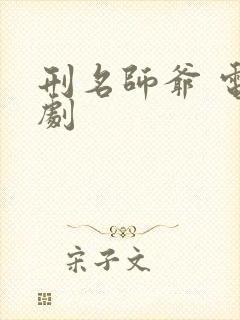 刑名師爺 電
劇
宋子文